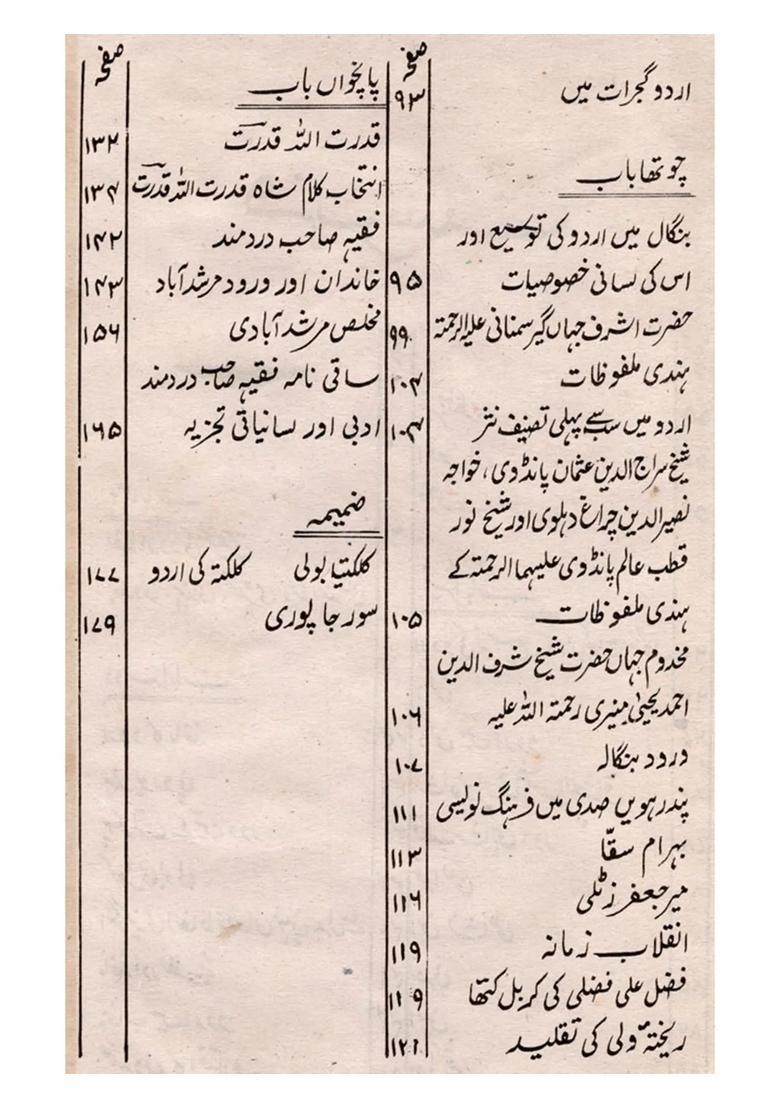 صفحہ
اردو گجرات میں ۹۳
چوتھا باب
بنگال میں اردو کی توسیع اور
اس کی لسانی خصوصیات ۹۵
حضرت اشرف جہاں گیر سمنانی علیہ الرحمتہ ۹۹
ہندی ملفوظات ۱۰۴
اردو میں سب سے پہلی تصنیف نثر ۱۰۴
شیخ سراج الدین عثمان پانڈوی، خواجہ
نصیر الدین چراغ دہلوی اور شیخ نور
قطب عالم پانڈوی علیہما الرحمتہ کے
ہندی ملفوظات ۱۰۵
مخدوم جہاں حضرت شیخ شرف الدین
احمد یحییٰ منیری رحمتہ اللہ علیہ ۱۰۶
درود بنگالہ ۱۰۷
پندرہویں صدی میں فرہنگ نویسی ۱۱۱
بہرام سقّا ۱۱۳
میر جعفر زٹلی ۱۱۶
انقلاب زمانہ ۱۱۹
فضل علی فضلی کی کربل کتھا ۱۱۹
ریختہ ولی کی تقلید ۱۲۱
صفحہ
پانچواں باب
قدرت اللہ قدرت ۱۳۲
انتخاب کلام شاہ قدرت اللہ قدرت ۱۳۴
فقیہ صاحب دردمند ۱۴۲
خاندان اور ورود مرشد آباد ۱۴۳
مخلص مرشد آبادی ۱۵۶
ساقی نامہ فقیہ صاحب دردمند
ادبی اور لسانیاتی تجزیہ ۱۶۵
ضمیمہ
کلکتیا بولی کلکتہ کی اردو ۱۷۷
سورجا پوری ۱۷۹